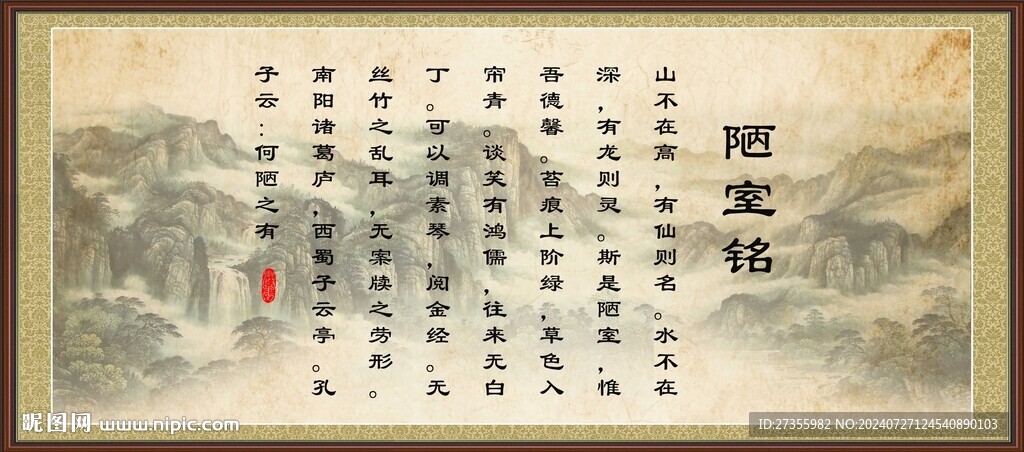 陋室铭
山不在高,有仙则名。水不在
深,有龙则灵。斯是陋室,惟
吾德馨。苔痕上阶绿,草色入
帘青。谈笑有鸿儒,往来无白
丁。可以调素琴,阅金经。无
丝竹之乱耳,无案牍之劳形。
南阳诸葛庐,西蜀子云亭。孔
子云:何陋之有
昵图网 www.nipic.com
ID:27355982 NO:20240727124540890103